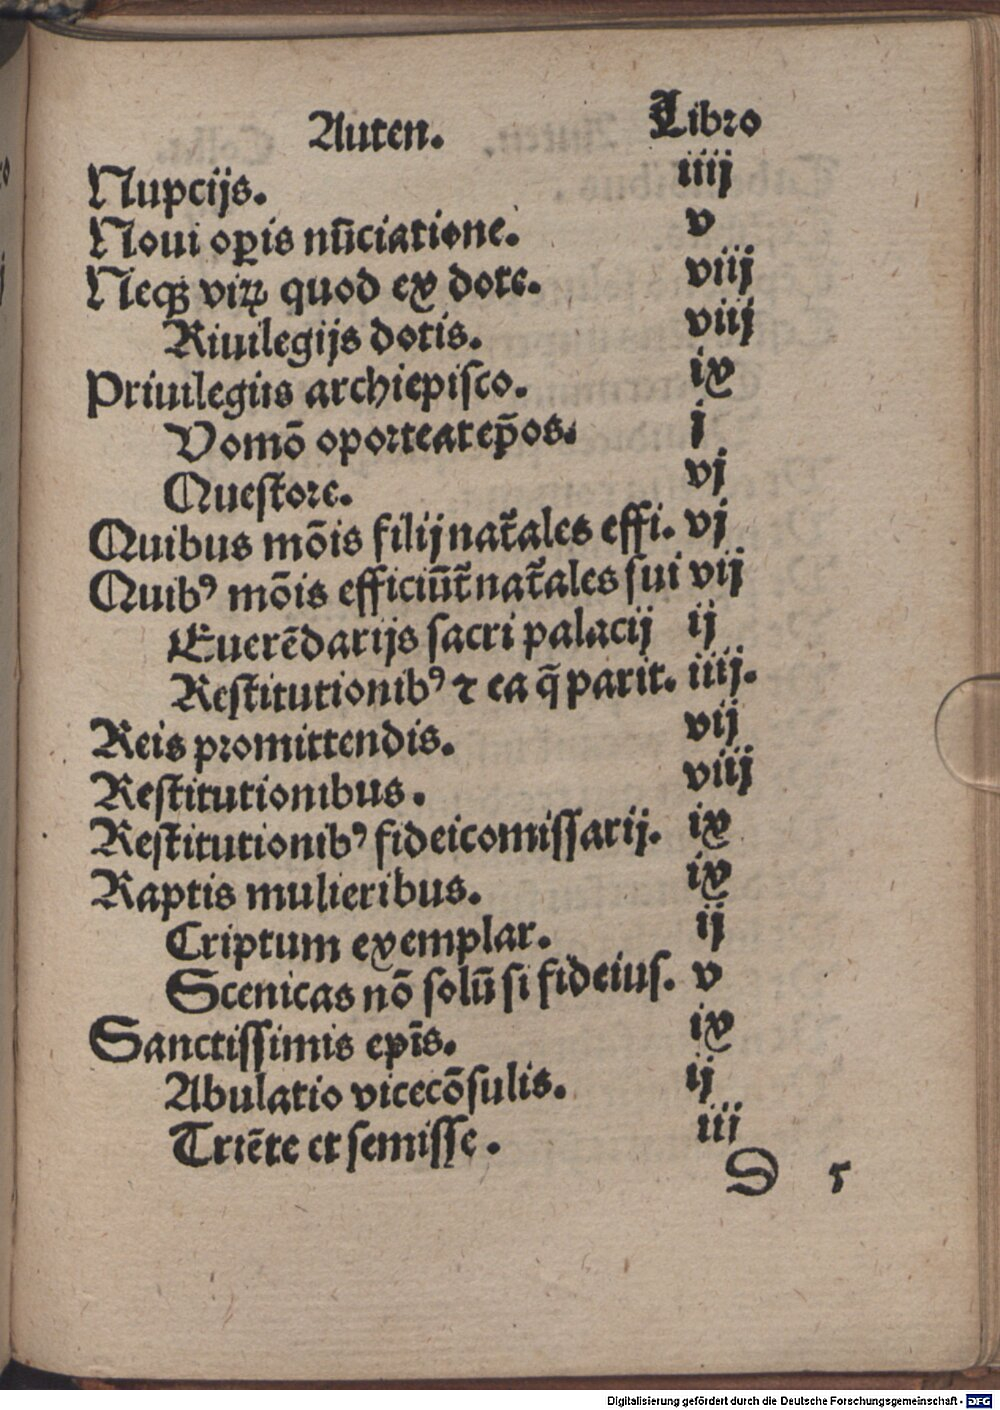 Auten. Libro
Nupcijs. iiij
Noui oꝑis nũciatione. v
Neqꝫ viꝝ quod ex dote. viij
Riuilegijs dotis. viij
Priuilegiis archiepisco. ix
Vomõ oporteat ep̃os. j
Questore. vj
Quibus mõis filij nat̃ales effi. vj
Quibꝰ mõis efficiũt̃ nat̃ales sui vij
Euerẽdarijs sacri palacij ij
Restitutionibꝰ ⁊ ea q̃ parit. iiij.
Reis promittendis. vij
Restitutionibus. viij
Restitutionibꝰ fideicomissarij. ix
Raptis mulieribus. ix
Criptum exemplar. ij
Scenicas nõ solũ si fideius. v
Sanctissimis ep̃is. ix
Abulatio vicecõsulis. ij
Triẽte et semisse. iij
D 5
Digitalisierung gefördert durch die Deutsche Forschungsgemeinschaft - DFG